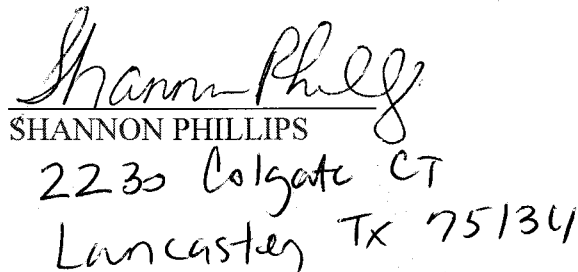 Shannon Phillips
SHANNON PHILLIPS
2230 Colgate CT
Lancaster, TX 75134